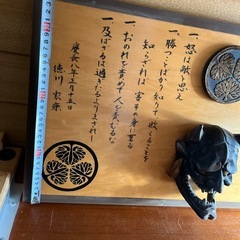 一、怒は敵と思え
一、勝つことばかり知りて、敗くることを
知らざれば 害その身に至る
一、おのれを責めて人を責むるな
一、及ばざるは過ぎたるよりまされり
慶長八年正月十五日
徳川家康